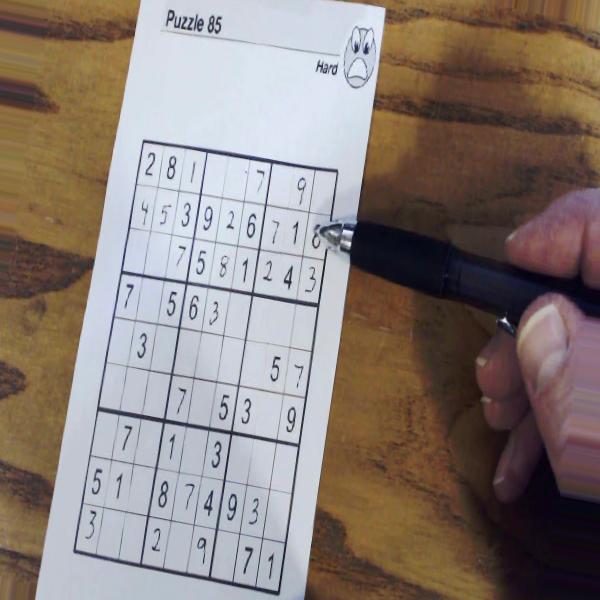 Puzzle 85
Hard
2 8 1 7 9
4 5 3 9 2 6 7 1
7 5 8 1 2 4 3
7 5 6 3
3 5 7
7 5 3 9
7 1 3
5 1 8 7 4 9 3
3 2 9 7 1